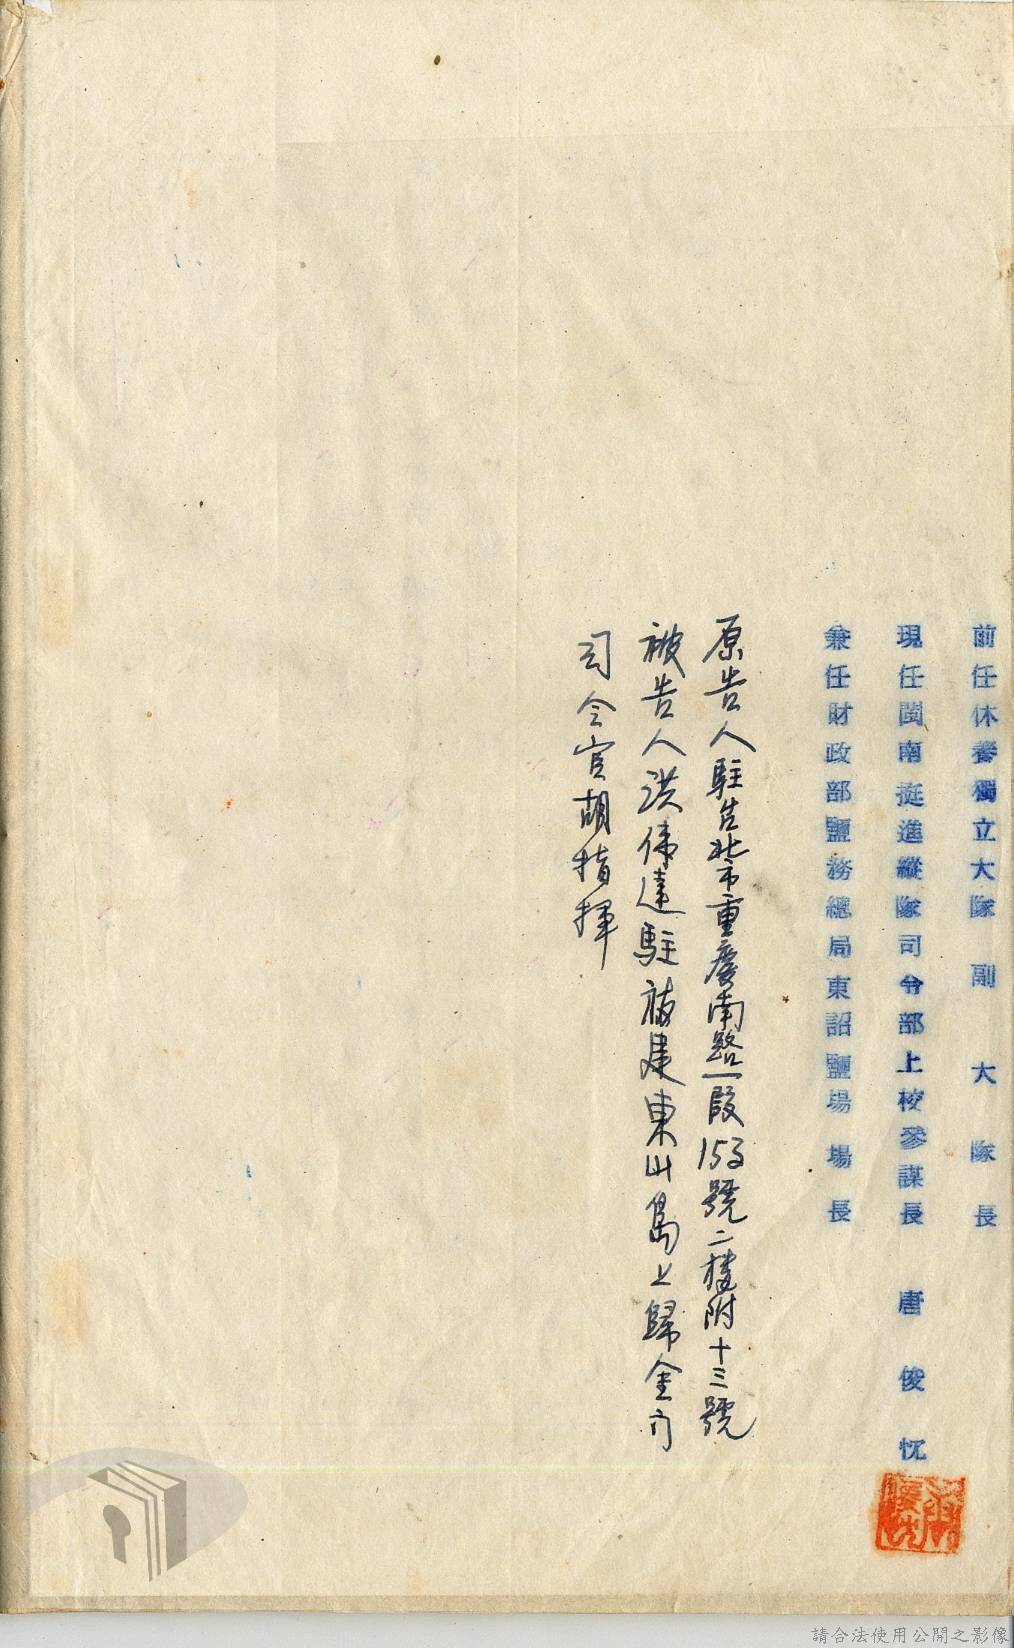 前任休養獨立大隊副大隊長
現任閩南挺進縱隊司令部上校參謀長 唐俊忱
兼任財政部鹽務總局東詔鹽場場長
原告人駐台北市重慶南路一段153號二樓附十三號
被告人洪偉達駐福建東山島上歸金門
司令官胡指揮
請合法使用公開之影像